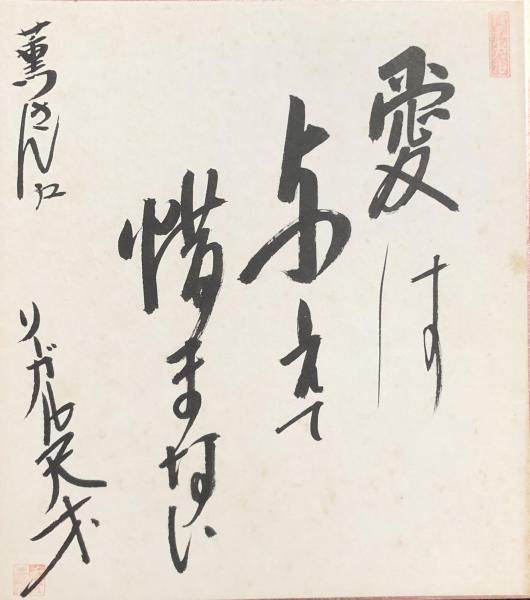 愛は
与えて
惜まない
薫さん江
リーガル天才